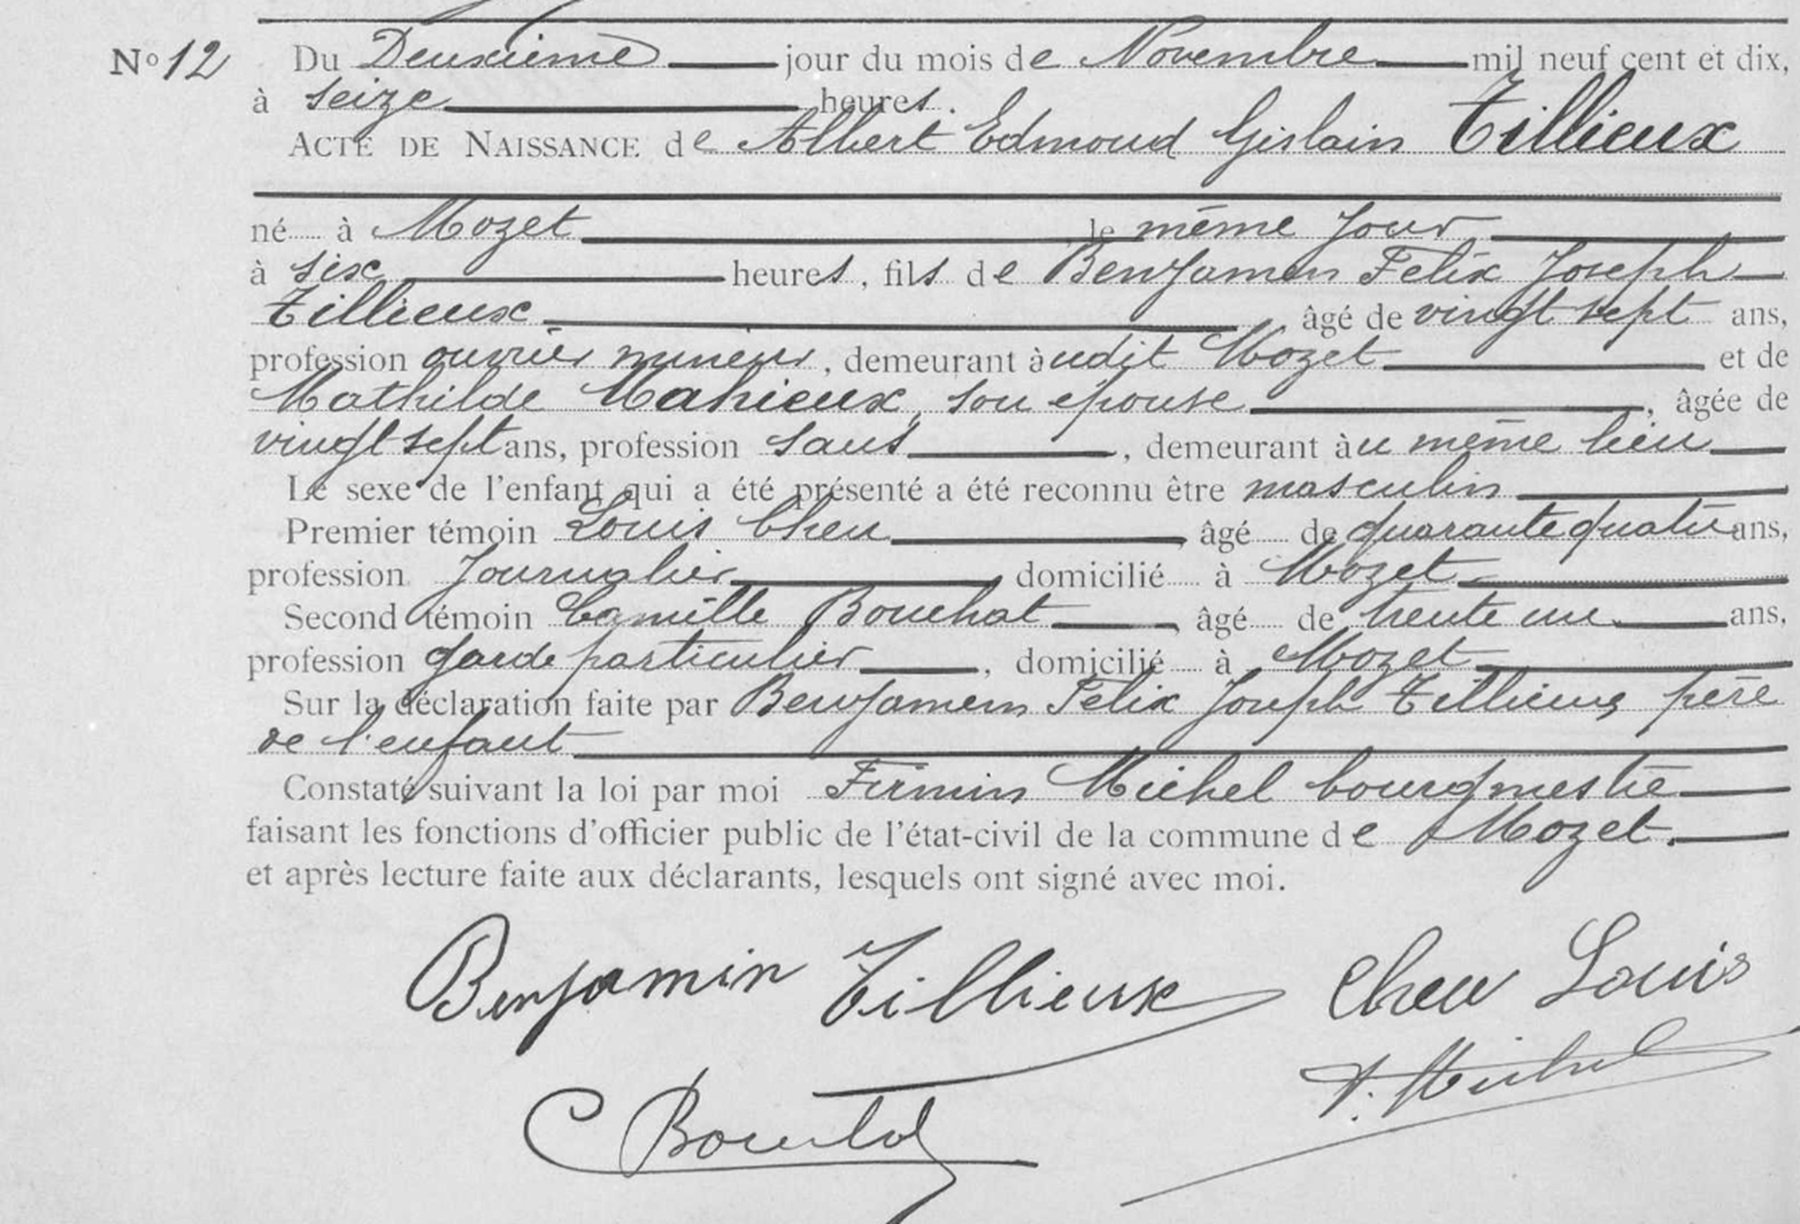 N° 12 Du Deuxième jour du mois de Novembre mil neuf cent et dix,
à seize heures.
ACTE DE NAISSANCE de Albert Edmond Gislain Tillieux
né à Mozet le même jour
à six heures, fils de Benjamen Felix Joseph
Tillieux âgé de vingt sept ans,
profession ouvrier mineur, demeurant à udit Mozet et de
Mathilde Mahieux, son épouse, âgée de
vingt sept ans, profession sans, demeurant àu même lieu
Le sexe de l'enfant qui a été présenté a été reconnu être masculin
Premier témoin Louis Cheu, âgé de quarante quatre ans,
profession Journalier, domicilié à Mozet
Second témoin Camille Bouchat, âgé de trente un ans,
profession garde particulier, domicilié à Mozet
Sur la déclaration faite par Benjamem Felix Joseph Tillieux père
de l'enfant
Constaté suivant la loi par moi Firmin Michel bourgmestre
faisant les fonctions d'officier public de l'état-civil de la commune de Mozet.
et après lecture faite aux déclarants, lesquels ont signé avec moi.
Benjamin Tillieux Cheu Louis
F. Michel
C Bouchat